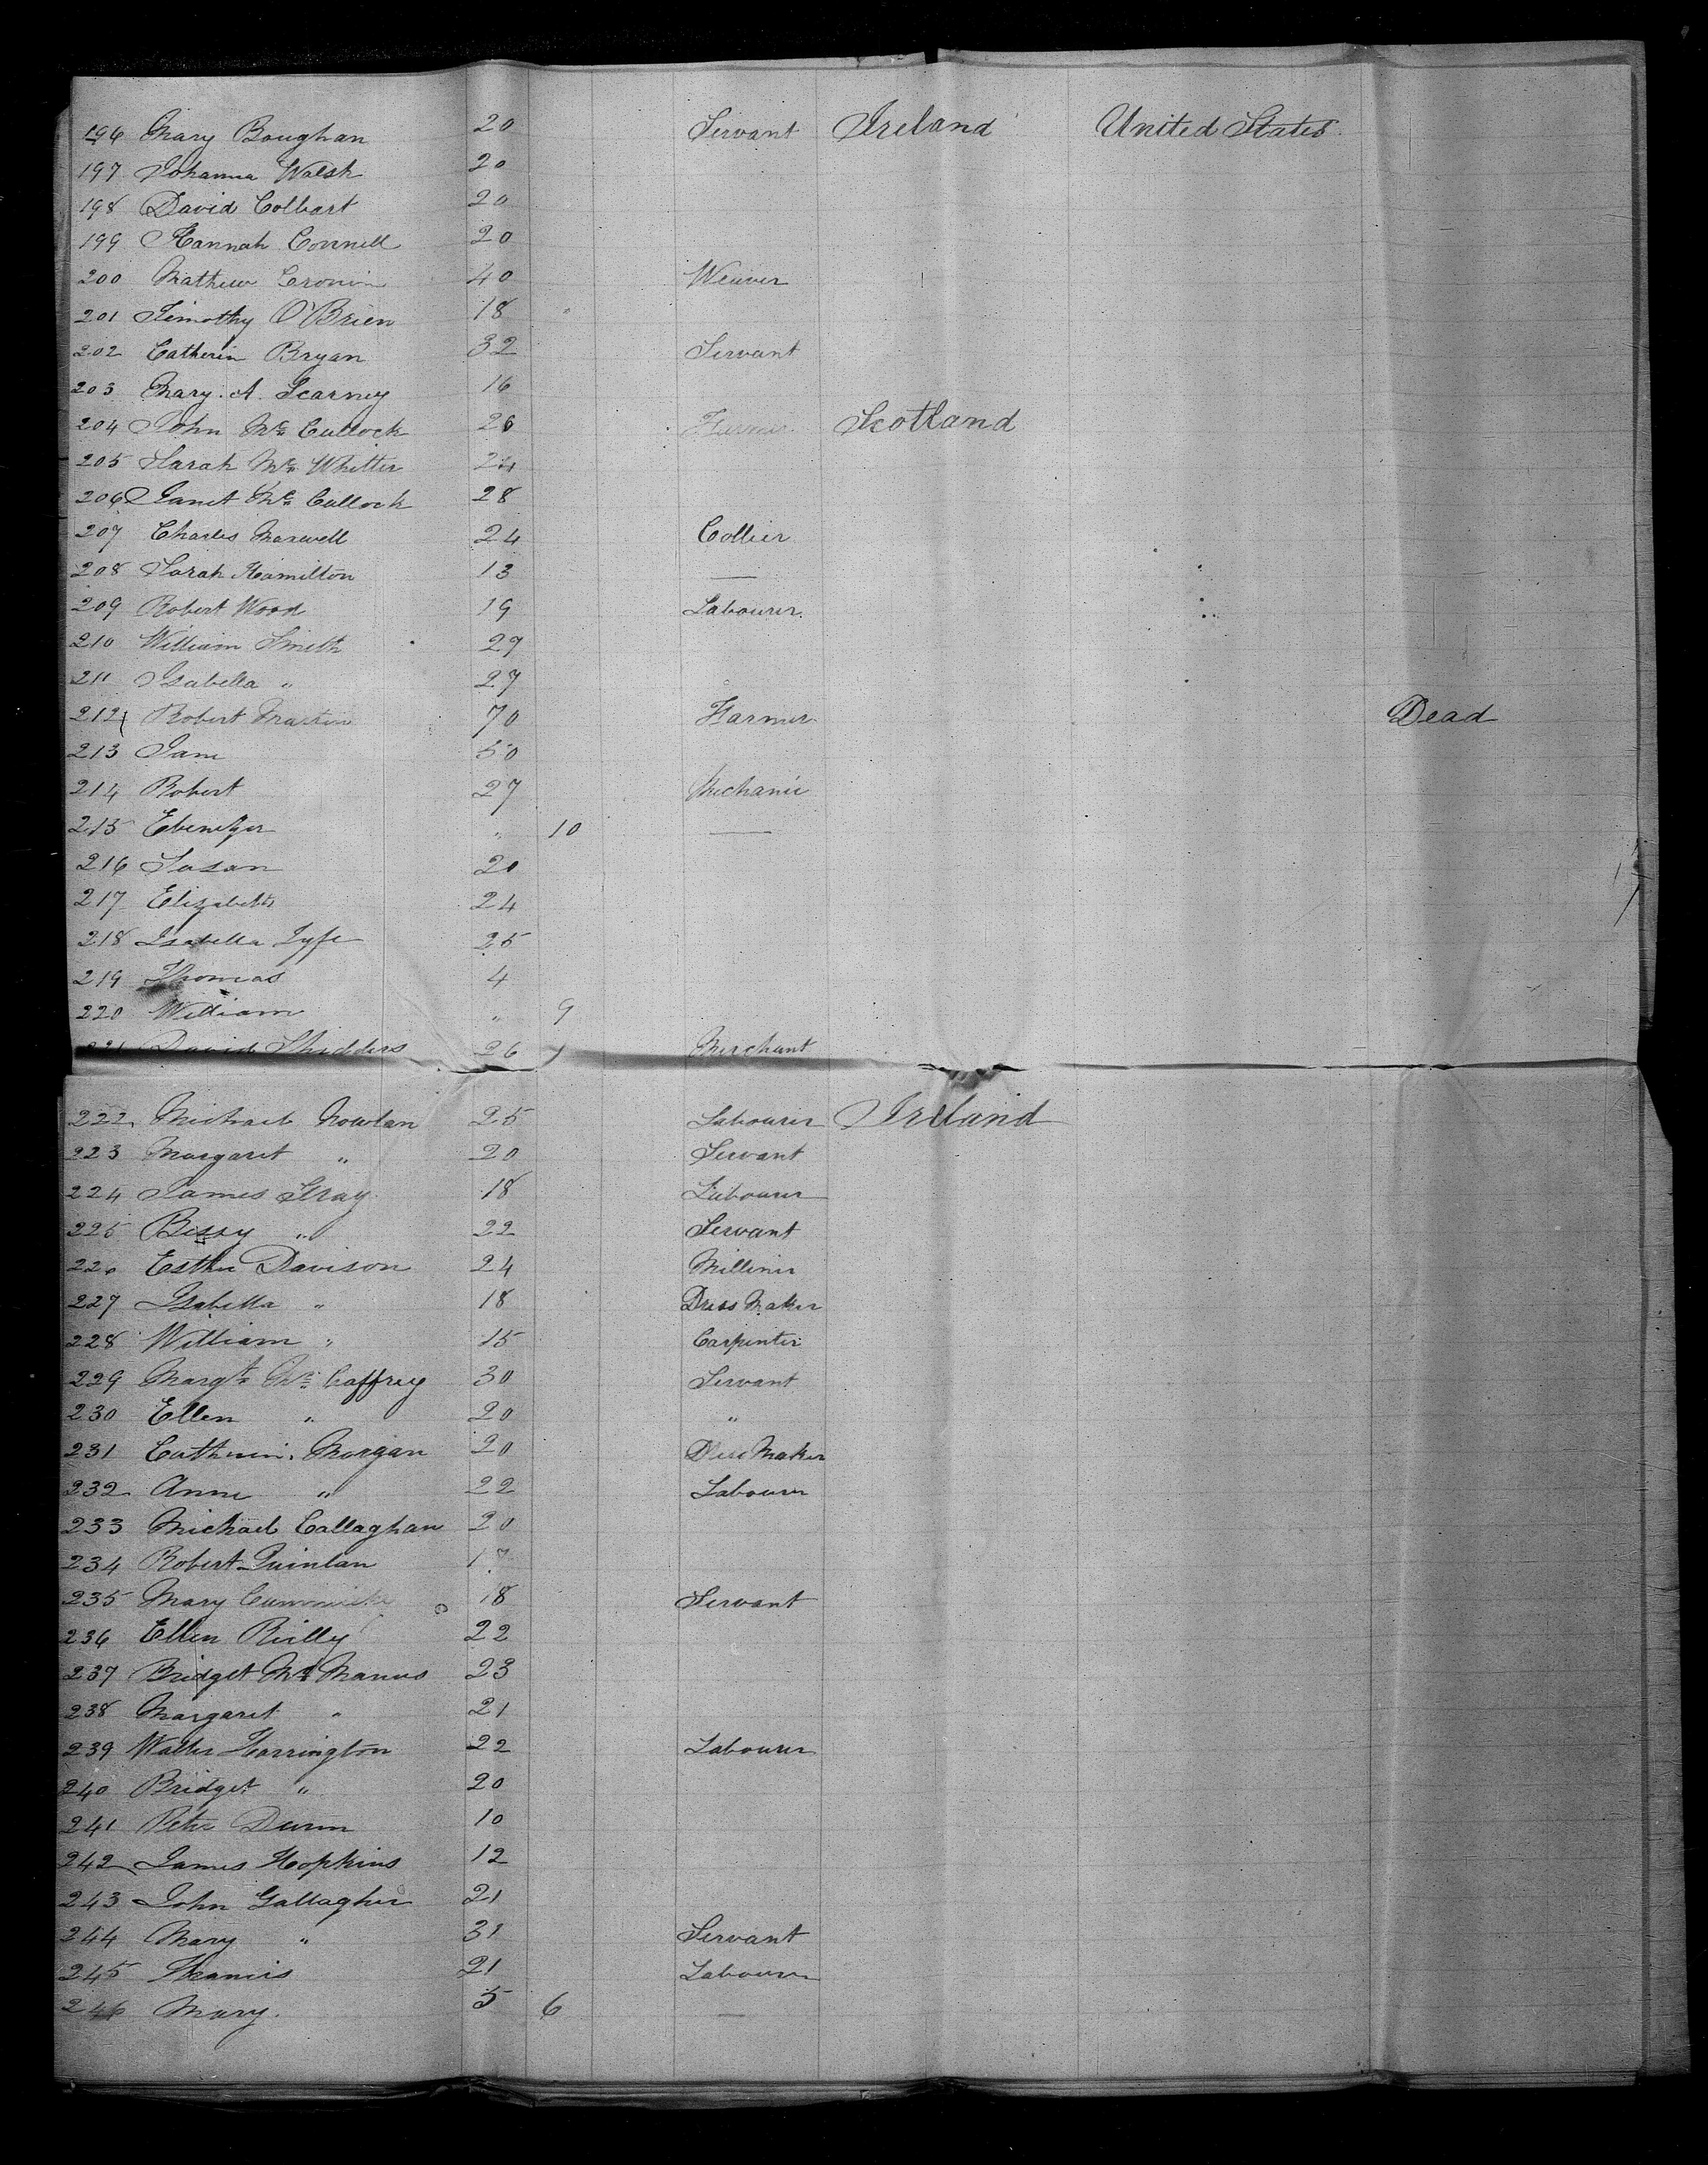 196 Mary Boughan 20 Servant Ireland United States
197 Johanna Walsh 20
198 David Colbart 20
199 Hannah Connell 20
200 Mathew Cronin 40 Weaver
201 Timothy O'Brien 18
202 Catherin Bryan 32 Servant
203 Mary. A. Scarney 16
204 John Mc Cullock 28 Farmer Scotland
205 Sarah Mc Whitter 24
206 Janet Mc Cullock 28
207 Charles Maxwell 24 Collier
208 Sarah Hamilton 13 —
209 Robert Wood 19 Labourer.
210 William Smith 27
211 Isabella " 27
212 Robert Martin 70 Farmer Dead
213 Jane 50
214 Robert 27 Mechanic
215 Ebenezer " 10 —
216 Susan 20
217 Elizabeth 24
218 Isabella Fyfe 25
219 Thomas 4
220 William " 9
221 David Shidders 26 Merchant
222 Michael Nowlan 25 Labourer Ireland
223 Margaret " 20 Servant
224 James Gray 18 Labourer
225 Bessy " 22 Servant
226 Esther Davison 24 Milliner
227 Isabella " 18 Dress Maker
228 William " 15 Carpenter
229 Margt Mc Caffrey 30 Servant
230 Ellen " 20 "
231 Catherin Morgan 20 Dress Maker
232 Anne " 22 Labourer
233 Michael Callaghan 20
234 Robert Quinlan 17
235 Mary 18 Servant
236 Ellen Reilly 22
237 Bridget Mc Manus 23
238 Margaret " 21
239 Walter Harrington 22 Labourer
240 Bridget " 20
241 Peter Dunn 10
242 James Hopkins 12
243 John Gallagher 21
244 Mary " 31 Servant
245 Francis 21 Labourer
246 Mary. 5 6 —